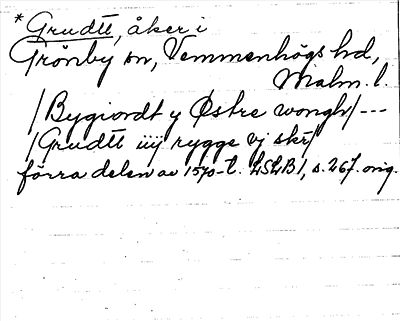 * Grudtt, åker i
Grönby sn, Vemmenhögs hd,
Malm. l.
/Bygiordt y Østre wongh/ ---
/Grudtt iiij rygge vj skr/
förra delen av 1570-t. LSLB 1, s. 267. orig.